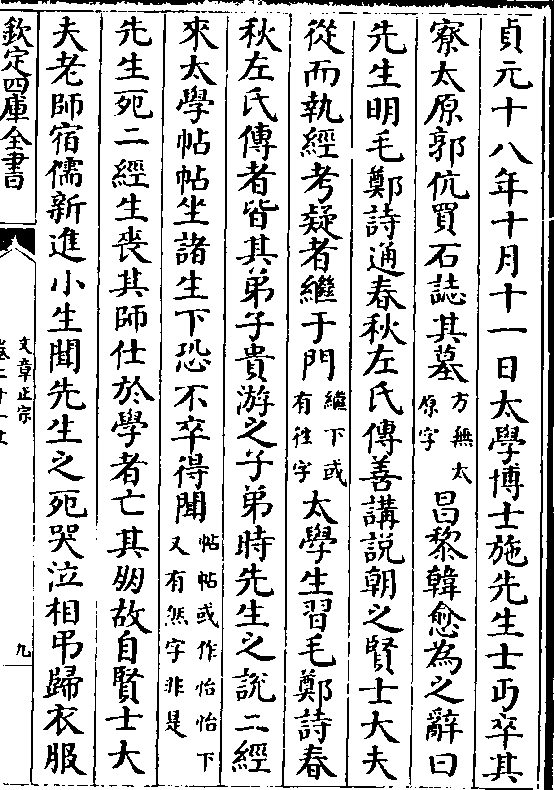 貞元十八年十月十一日太學博士施先生士丐卒其
寮太原郭伉買石誌其墓方無太原字昌黎韓愈為之辭曰
先生明毛鄭詩通春秋左氏傳善講說朝之賢士大夫
從而執經考疑者繼于門繼下或有往字太學生習毛鄭詩春
秋左氏傳者皆其弟子貴游之子弟時先生之說二經
來太學帖帖坐諸生下恐不卒得聞帖帖或作怡怡下又有然字非是
先生死二經生喪其師仕於學者亡其朋故自賢士大
夫老師宿儒新進小生聞先生之死哭泣相弔歸衣服
欽定四庫全書
文章正宗
九